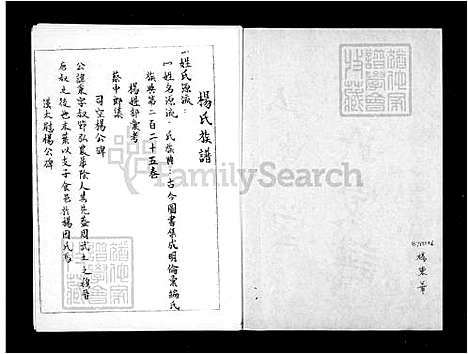 楊氏族譜
一姓氏源流：
一姓名源流·氏族典：古今圖書集成明倫彙編氏
族典第二百二十五卷
楊姓部彙考
蔡中郎集
司空楊公碑
公諱秉字叔節弘農華陰人其先蓋周武王之穆晉
唐叔之後也末葉以支子食邑於楊因氏焉
漢太尉楊公碑
FamilySearch